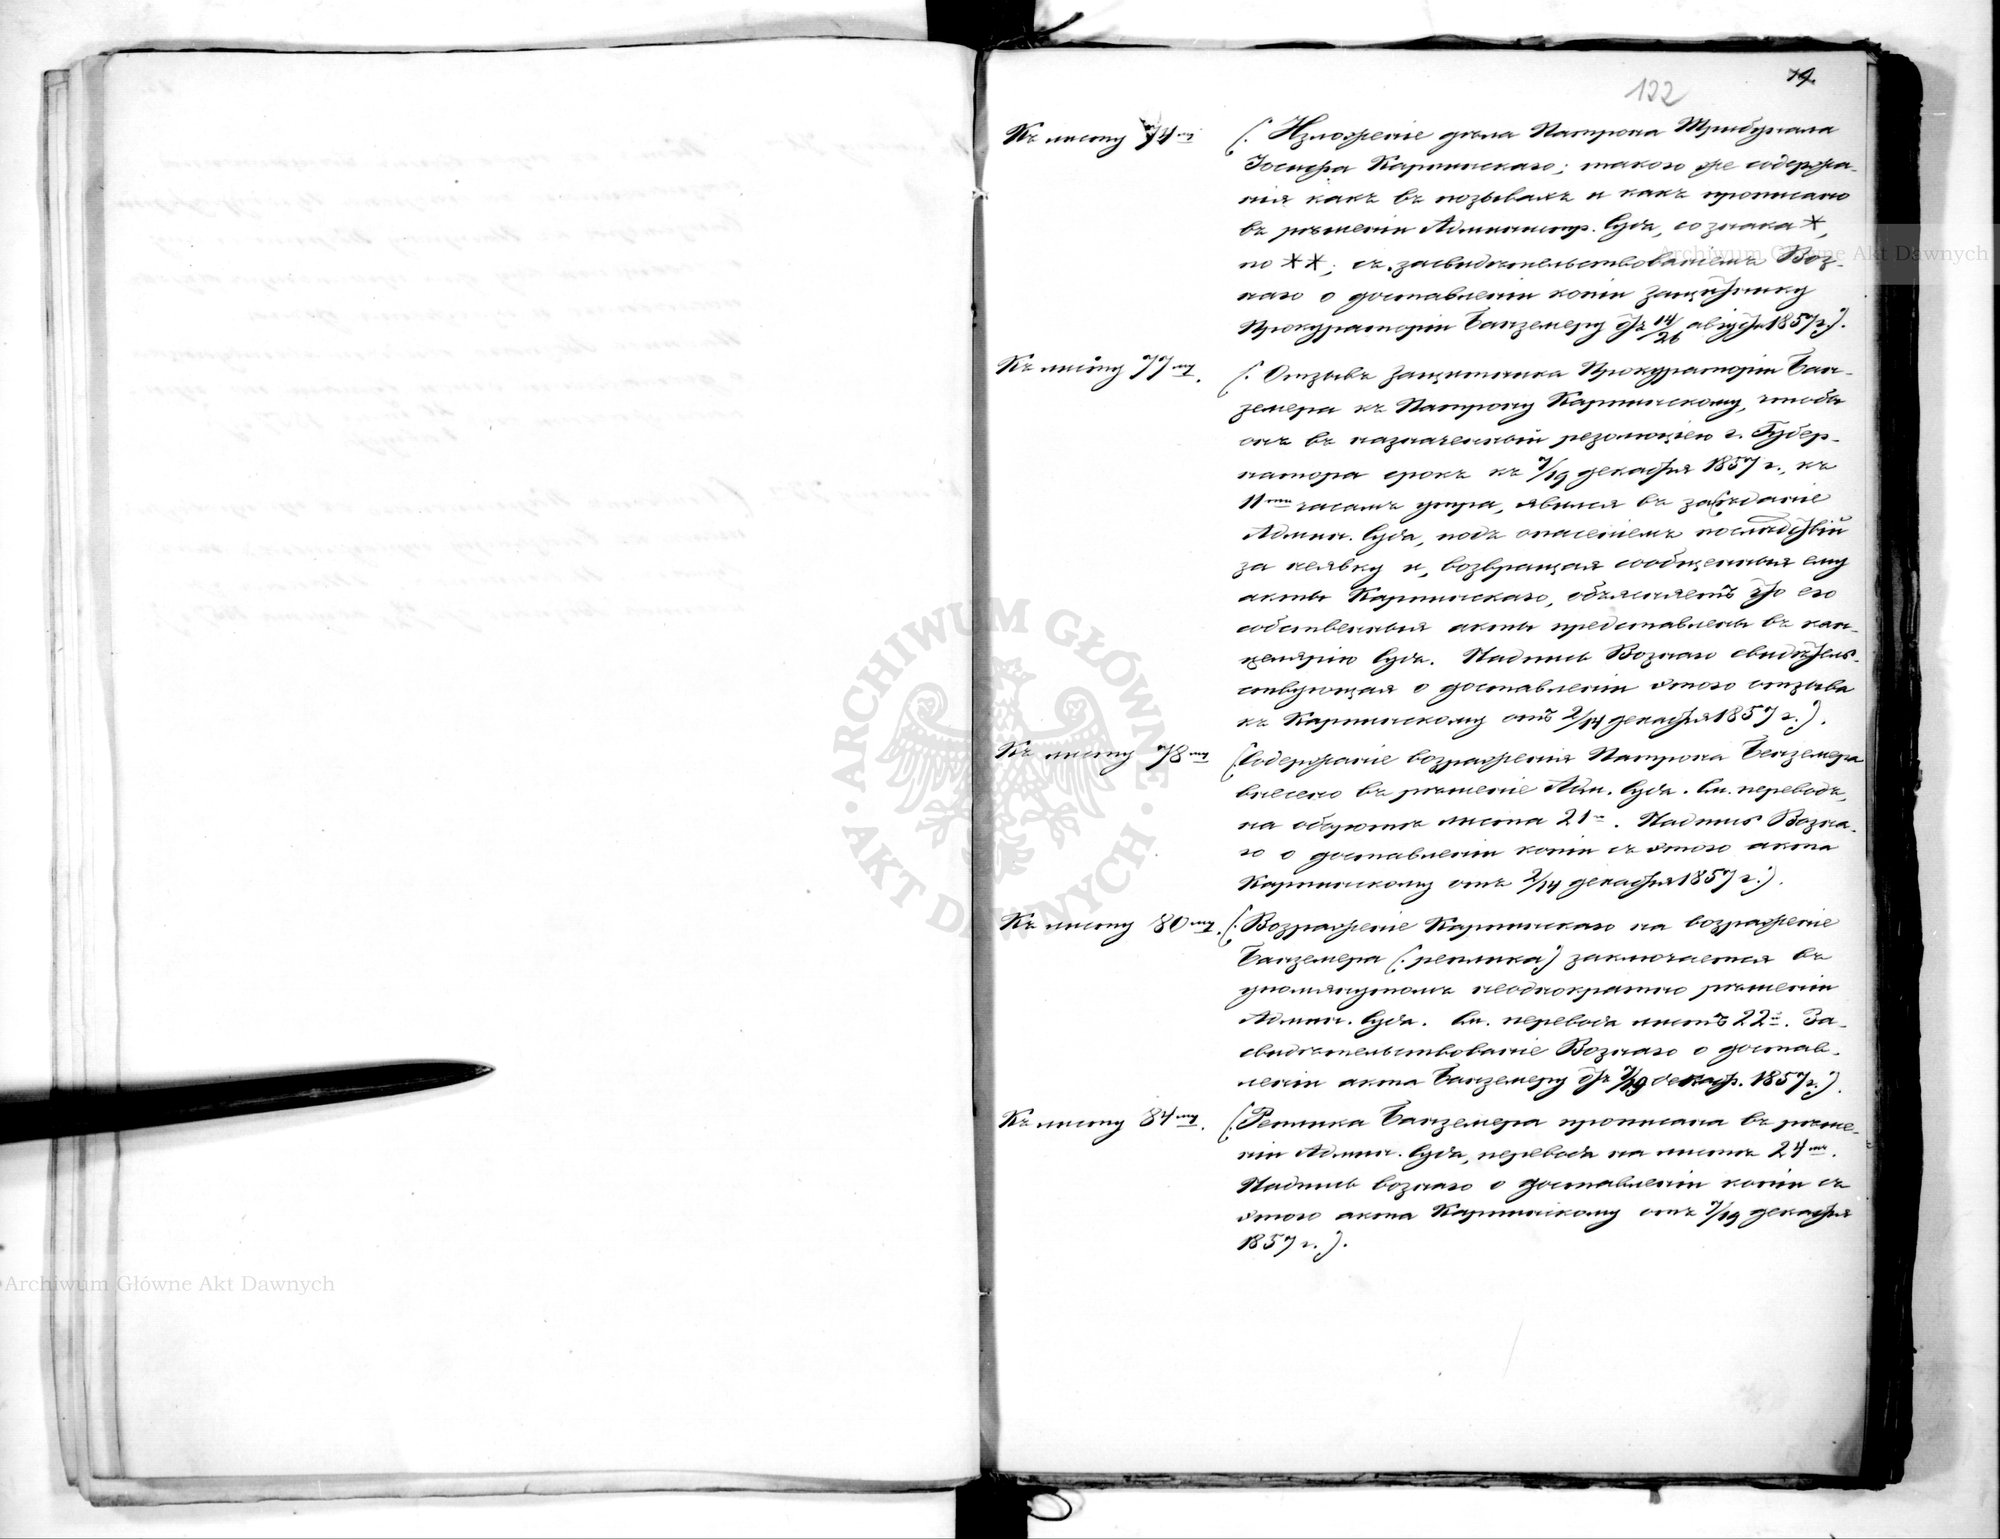 122
74.
Къ листу 74му
(: Изложеніе дѣла Патрона Трибунала
Іосифа Карпинскаго; такого же содержа-
нія какъ въ позывахъ и какъ прописано
въ рѣшеніи Администр. Суда, со знака *,
по **; съ засвидѣтельствованіемъ Воз-
наго о доставленіи копіи защитнику
Прокураторіи Банземеру отъ 14/26 августа 1857 г:).
Къ листу 77му.
(: Отзывъ защитника Прокураторіи Бан-
земера къ Патрону Карпинскому, чтобы
онъ въ назначенный резолюціею г. Губер-
натора срокъ къ 7/19 декабря 1857 г., къ
11ти часамъ утра, явился въ засѣданіе
Админ. Суда, подъ опасеніемъ послѣдствій
за неявку и, возвращая сообщенныя ему
акты Карпинскаго, объясняетъ что его
собственныя акты представлены въ кан-
целярію Суда. Надпись Вознаго свидѣтель-
ствующая о доставленіи этого отзыва
къ Карпинскому отъ 2/14 декабря 1857 г.:).
Къ листу 78му
(: Содержаніе возраженія Патрона Банземера
внесено въ рѣшеніе Адм. Суда. См. переводъ,
на оборотѣ листа 21го. Надпись Возна-
го о доставленіи копіи съ этого акта
Карпинскому отъ 2/14 декабря 1857 г.:).
Къ листу 80му.
(: Возраженіе Карпинскаго на возраженіе
Банземера (: реплика) заключается въ
упомянутомъ неоднократно рѣшеніи
Админ. Суда. См. перевода листъ 22й. За-
свидѣтельствованіе Вознаго о достав-
леніи акта Банземеру отъ 7/19 декабр. 1857 г.:).
Къ листу 84му.
(: Реплика Банземера прописана въ рѣше-
ніи Админ. Суда, перевода на листѣ 24мъ.
Надпись вознаго о доставленіи копіи съ
этого акта Карпинскому отъ 7/19 декабря
1857 г. :).
ARCHIWUM GŁÓWNE
AKT DAWNYCH
Archiwum Główne Akt Dawnych
Archiwum Główne Akt Dawnych